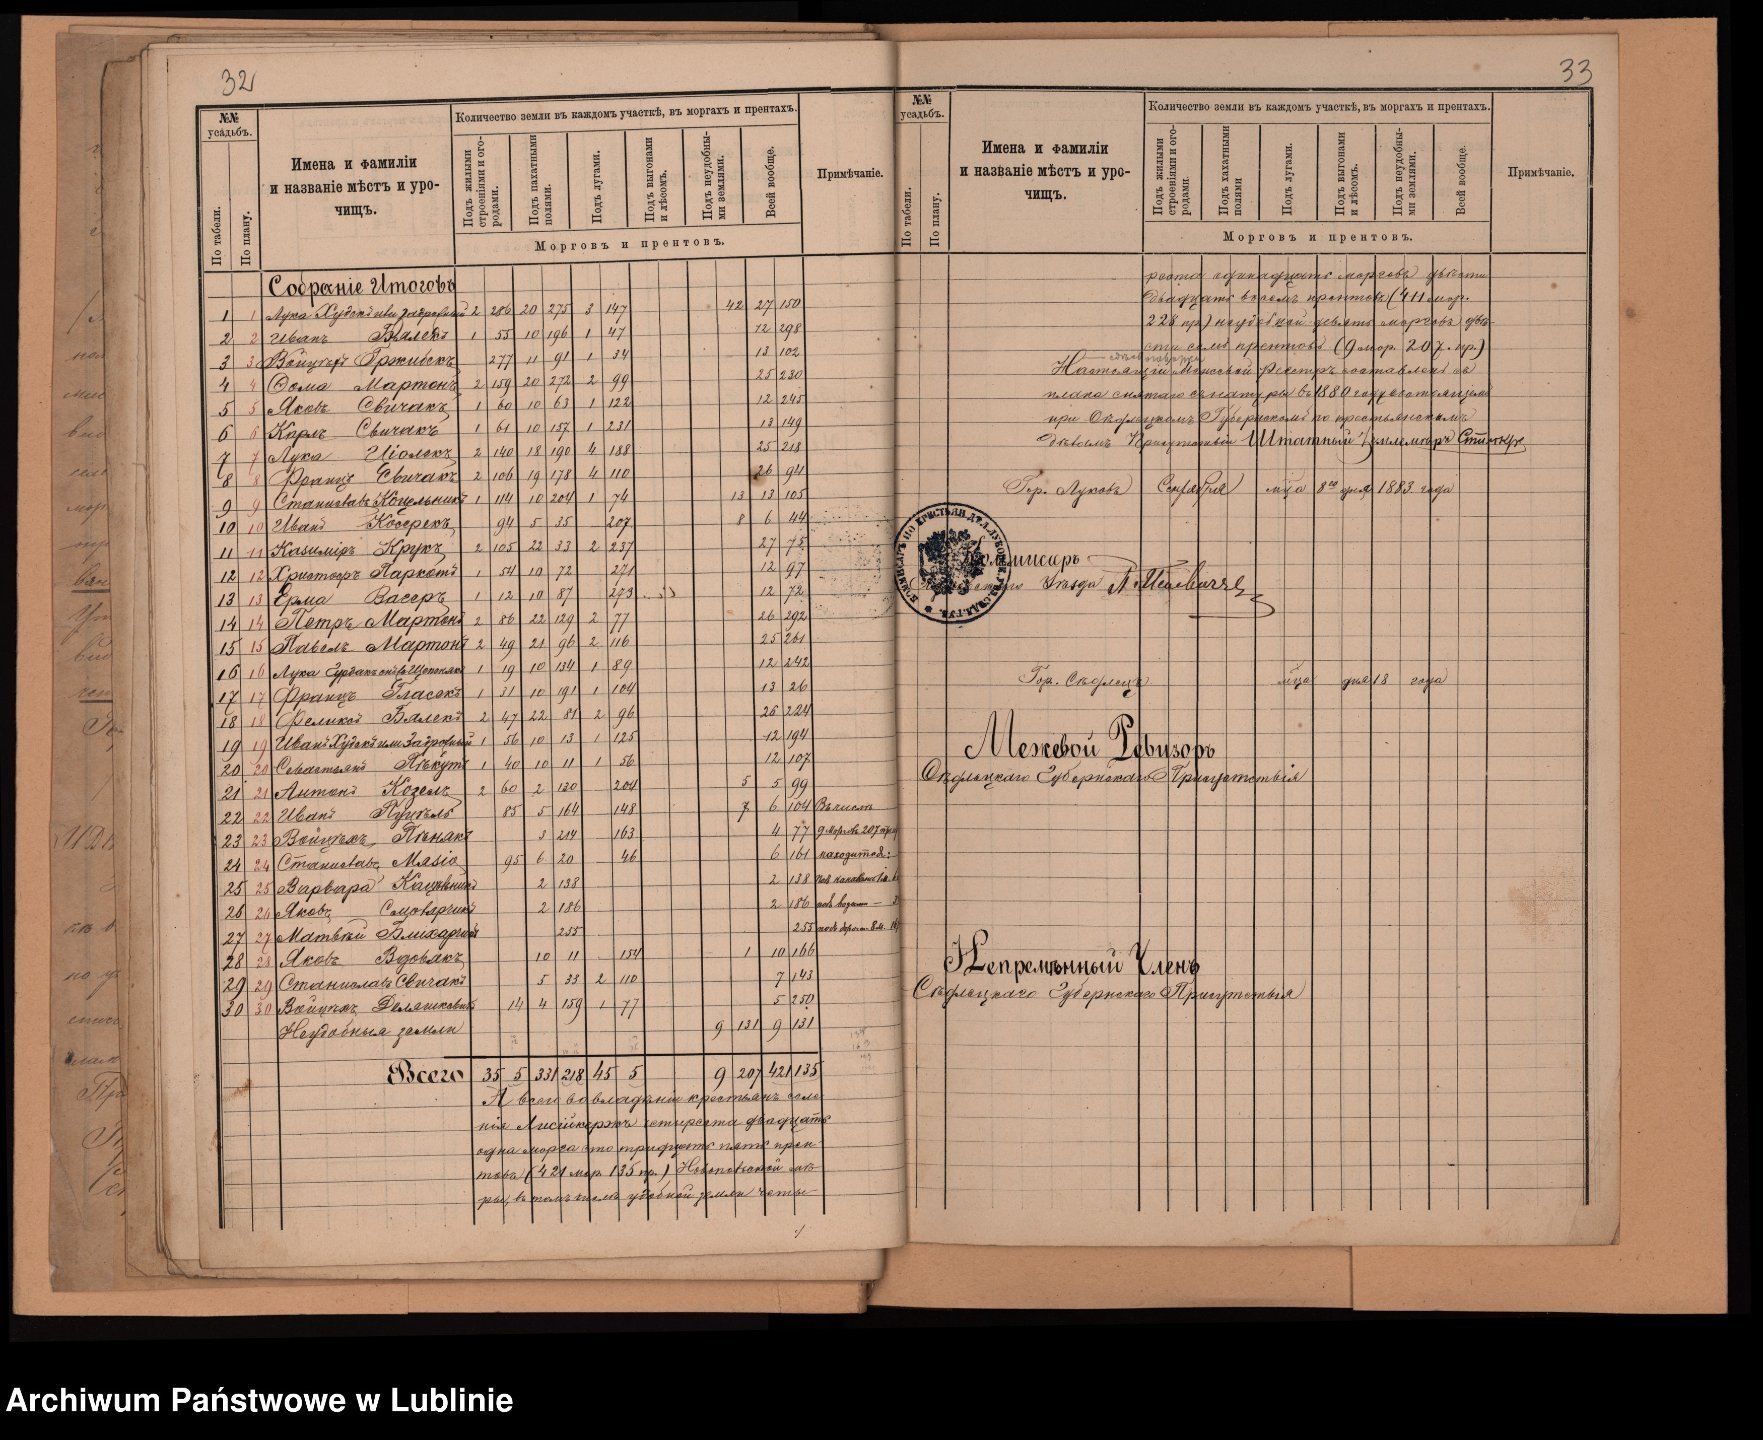 32
№№ усадьбъ.
По табели.
По плану.
Имена и фамиліи и названіе мѣстъ и урочищъ.
Количество земли въ каждомъ участкѣ, въ моргахъ и прентахъ.
Подъ жилыми строеніями и огородами.
Подъ пахатными полями.
Подъ лугами.
Подъ выгонами и лѣсомъ.
Подъ неудобными землями.
Всей вообще.
Примѣчаніе.
Морговъ и прентовъ.
Собраніе Итоговъ
1 1 Лука Худекъ или 2 286 20 275 3 147 42 27 150
2 2 Иванъ Бялекъ 1 55 10 196 1 47 12 298
3 3 Войцѣхъ Гржибекъ 277 11 91 1 34 13 102
4 4 Ѳома Мартонъ 2 159 20 272 2 99 25 230
5 5 Яковъ Свичакъ 1 60 10 63 1 122 12 245
6 6 Карлъ Свичакъ 1 61 10 157 1 231 13 149
7 7 Лука Ціолекъ 2 140 18 190 4 188 25 218
8 8 Францъ Свичакъ 2 106 19 178 4 110 26 94
9 9 Станиславъ Коцельникъ 1 114 10 204 1 74 13 13 105
10 10 Иванъ 94 5 35 207 8 6 44
11 11 Казиміръ Крукъ 2 105 22 33 2 237 27 75
12 12 Христофръ Паркотъ 1 54 10 72 271 12 97
13 13 Ерма Васеръ 1 12 10 87 273 12 72
14 14 Петръ Мартонъ 2 86 22 129 2 77 26 292
15 15 Павелъ Мартонъ 2 49 21 96 2 116 25 261
16 16 Лука 1 19 10 134 1 89 12 242
17 17 Францъ Гласекъ 1 31 10 191 1 104 13 26
18 18 Феликсъ Бялекъ 2 47 22 81 2 96 26 224
19 19 Иванъ Худекъ или Задровный 1 56 10 13 1 125 12 194
20 20 Севастьянъ Пѣкутъ 1 40 10 11 1 56 12 107
21 21 Антонъ Козелъ 2 60 2 130 204 5 5 99
22 22 Иванъ 85 5 164 148 7 6 104 Въ числѣ
23 23 Войцѣхъ Пѣнякъ 3 214 163 4 77 9 морговъ 207 прен
24 24 Станиславъ Мазіо 95 6 20 46 6 161 находится:
25 25 Варвара 2 138 2 138
26 26 Яковъ 2 186 2 186 подъ водами
27 27 Матвѣй 255 255 подъ дорогам. 8 м.
28 28 Яковъ Вдовякъ 10 11 154 1 10 166
29 29 Станиславъ Свичакъ 5 33 2 110 7 143
30 30 Войцѣхъ 14 4 159 1 77 5 250
Неудобныя земли 9 131 9 131
Всего 35 5 331 218 45 5 9 207 421 135
А всего во владѣніи крестьянъ селе-
нія четыреста двадцать
одна морга сто тридцать пять прен-
товъ (421 мор. 135 пр.) Новопольской мѣ-
ры, въ томъ числѣ удобной земли четы-
33
№№ усадьбъ.
По табели.
По плану.
Имена и фамиліи и названіе мѣстъ и урочищъ.
Количество земли въ каждомъ участкѣ, въ моргахъ и прентахъ.
Подъ жилыми строеніями и огородами.
Подъ пахатными полями
Подъ лугами.
Подъ выгонами и лѣсомъ.
Подъ неудобными землями.
Всей вообще.
Примѣчаніе.
Морговъ и прентовъ.
реста одинадцать морговъ двѣсти
двадцать восемь прентовъ (411 мор.
228 пр) неудобной девять морговъ двѣ-
сти семь прентовъ (9 мор. 207 пр.)
Настоящій Межевой Реестръ составленъ съ
плана снятаго съ натуры въ 1880 году состоящимъ
при Сѣдлецкомъ Губернскомъ по крестьянскимъ
дѣламъ Присутствіи Штатный Землемѣръ
Гор. Луковъ Сентября мца 8го дня 1883 года
Коммисаръ
Уѣзда
Гор. Сѣдлецъ мца дня 18 года
Межевой Ревизоръ
Сѣдлецкаго Губернскаго Присутствія
Непремѣнный Членъ
Сѣдлецкаго Губернскаго Присутствія
Archiwum Państwowe w Lublinie